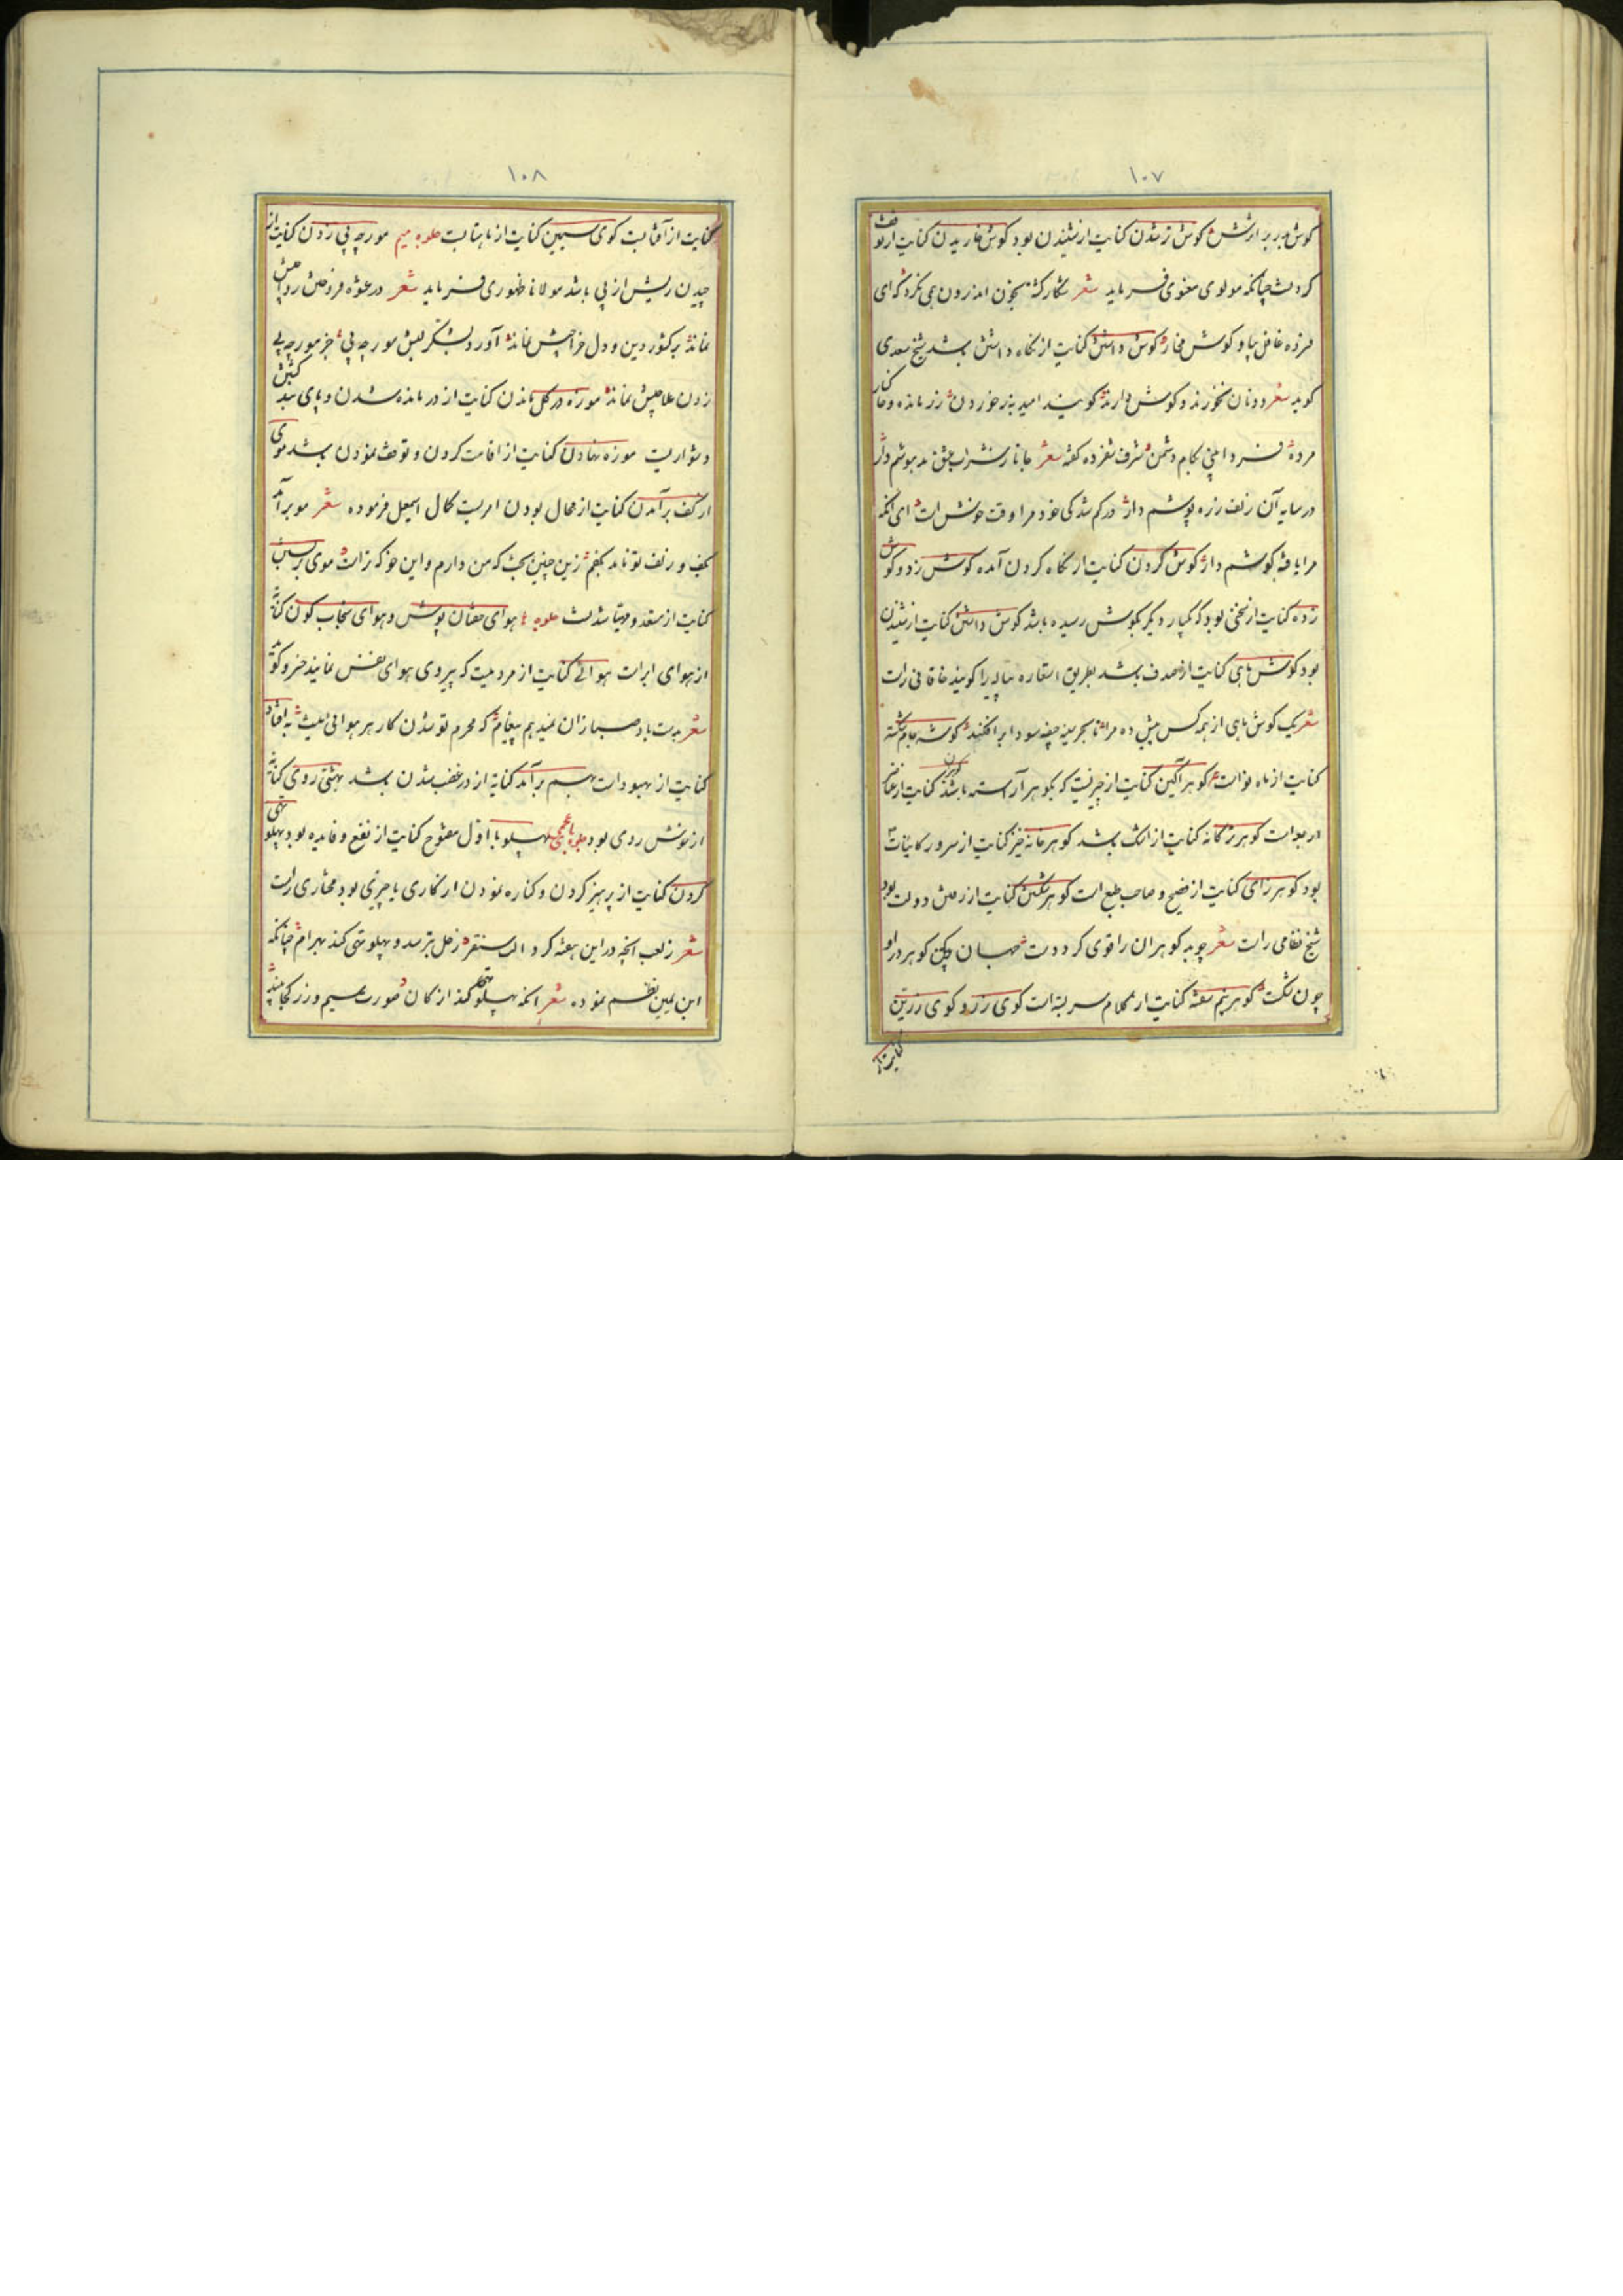 ۱۰۷
گوش مبر بر ارزش گوش تر شدن کنایت از شنیدن بود گوش خاریدن کنایت از توقف
کردنست چنانکه مولوی معنوی فرماید شعر بخون اندرون همی نکرد که ای
غافل بپا و گوش مخار گوش داشتن کنایت از نگاه داشتن باشد شیخ سعدی
گوید شعر دونان نخورند و گوش دارند گویند امید به ز خورده زر مانده و خاکسار
مرده فردا بینی بکام دشمن شرف شفروه گفته شعر جانا ز شراب عشق مدهوشم دار
در سایه آن زلف زره پوشم دار در گم شدگی خود مرا وقت خوش است ای آنکه
مرا یافته گوشم دار گوش کردن کنایت از نگاه کردن آمده گوش زد و گوش
زده کنایت از سخنی بود که یکبار دیگر بگوش رسیده باشد گوش داشتن کنایت از شنیدن
بود گوش ماهی کنایت از صدف باشد بطریق استعاره پیاله را گویند خاقانی راست
شعر یک گوش ماهی از همه کس بیش ده مرا تا بحر سینه جیفه سودا برافکند گوشه جام شکسته
کنایت از ماه نو است گوهر آگین کنایت از چیزیست که بگوهر آراسته باشد کنایت از عناصر
اربعه است گوهر گانه کنایت از اشک باشد گوهر خانه خیز کنایت از سرور کاینات
بود گوهر زای کنایت از فصیح و صاحب طبع است گوهر شکستن کنایت از رفتن دولت بود
شیخ نظامی راست شعر چو بد گوهران را قوی کرد دست جهان بین که گوهر در او
چون شکست گوهر نیم سفته کنایت از کلام سربسته است گوی زر و گوی زرین
کنایت از
۱۰۸
کنایت از آفتابست گوی سیمین کنایت از ماهتابست جلوه میم مورچه پی زدن کنایت از
چیدن ریش از پی باشد مولانا ظهوری فرماید شعر در عشوه فروختن رواجش
نماند بر کشور دین و دل خراجش نماند آورد لشکر لبش مورچه پی جز مورچه پی
زدن علاجش نماند موزه در گل ماندن کنایت از درمانده شدن و پای بند گشتن
دشواریست موزه نهادن کنایت از اقامت کردن و توقف نمودن باشد موی
از کف برآمدن کنایت از محال بودن امریست کمال اسمعیل فرموده شعر مو برآمد
بکف و زلف تو نامد بکفم زین چنین بخت که من دارم و این خو که تراست موی
کنایت از مستعد و مهیا شدنست جلوه ها هوای خفتان پوش و هوای سنجاب گون کنایة
از هوای ابر است هوائی کنایت از مردمیست که پیروی هوای نفس نمایند خسرو گوید
شعر بدست باد صبا زان نمیدهم پیغام که محرم تو شدن کار هر هوائی نیست به افتاد
کنایت از بهبود است بهم برآمد کنایة از در غضب شدن باشد بهشتی روی کنایة
از خوش روی بود جلوه باء عجمی پهلو با اول مفتوح کنایت از نفع و فایده بود پهلو تهی
کردن کنایت از پرهیز کردن و کناره نمودن از کاری یا چیزی بود مختاری راست
شعر ز لعب آنچه در این هفته کرد الب سنقر زحل بترسد و پهلو تهی کند بهرام چنانکه
ابن یمین نظم نموده شعر آنکه پهلو تهی کند از کان صورت سیم و زر کجا بیند